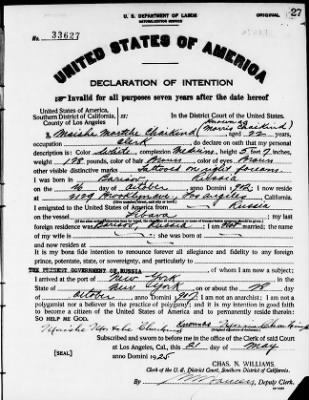 U. S. DEPARTMENT OF LABOR
NATURALIZATION SERVICE
ORIGINAL 27
No. 33627
UNITED STATES OF AMERICA
DECLARATION OF INTENTION
Invalid for all purposes seven years after the date hereof
United States of America,
Southern District of California, ss:
County of Los Angeles
In the District Court of the United States.
(Morris Chaikind)
I, Moishe Chaikind, aged 22 years,
occupation Clerk, do declare on oath that my personal
description is: Color White, complexion Medium, height 5 feet 7 inches,
weight 198 pounds, color of hair Brown, color of eyes Brown
other visible distinctive marks Tattooed on right forearm
I was born in Russia
on the day of October, anno Domini; I now reside
at Brooklyn Ave Los Angeles, California.
I emigrated to the United States of America from Russia
on the vessel Libava; my last
foreign residence was, Russia; I am not married; the name
of my wife is; she was born at
and now resides at
It is my bona fide intention to renounce forever all allegiance and fidelity to any foreign
prince, potentate, state, or sovereignty, and particularly to
THE PRESENT GOVERNMENT OF RUSSIA, of whom I am now a subject;
I arrived at the port of New York, in the
State of New York, on or about the 28 day
of October, anno Domini; I am not an anarchist; I am not a
polygamist nor a believer in the practice of polygamy; and it is my intention in good faith
to become a citizen of the United States of America and to permanently reside therein:
SO HELP ME GOD.
Subscribed and sworn to before me in the office of the Clerk of said Court
at Los Angeles, Cal., this 21 day of May
[SEAL] anno Domini 1925
CHAS. N. WILLIAMS,
Clerk of the U. S. District Court, Southern District of California.
By, Deputy Clerk.